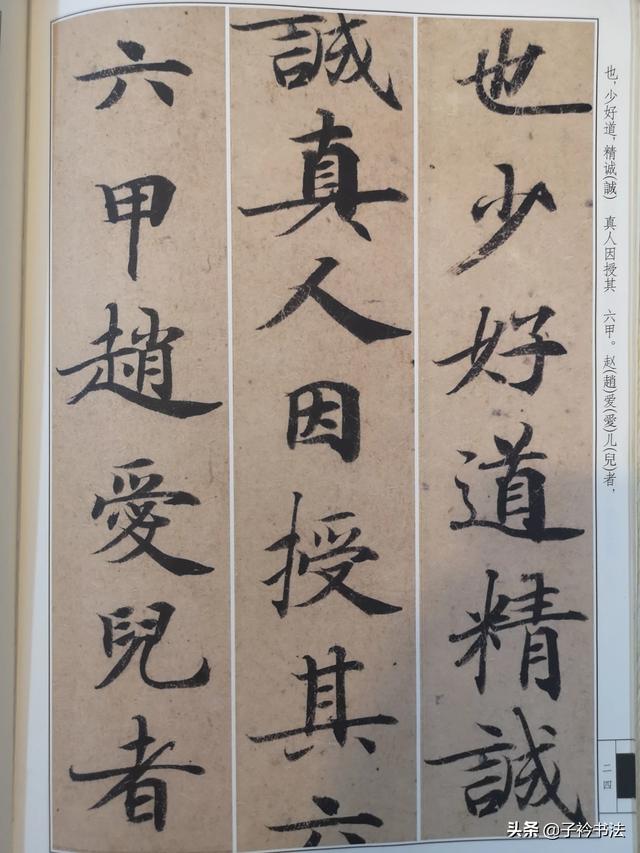 也少好道精誠
誠真人因授其六
六甲趙愛兒者
也，少好道，精诚(誠) 真人因授其 六甲。赵(趙)爱(愛)儿(兒)者，
二四
头条 @子衿书法